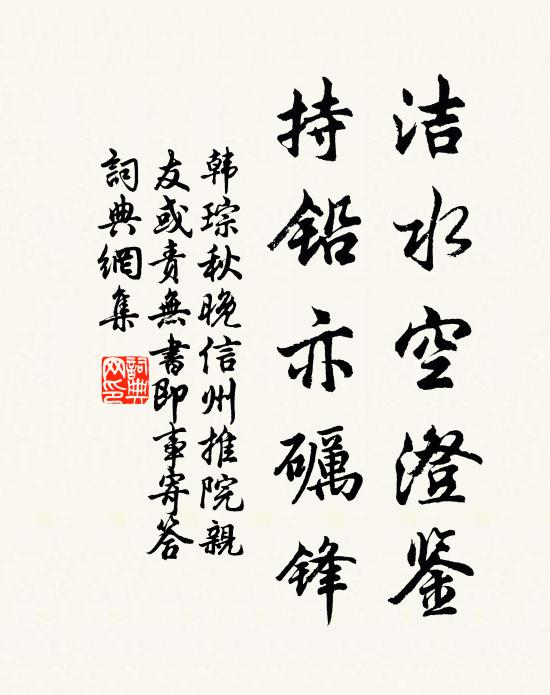 洁水空澄鉴
持铅亦砺锋
韩琮秋晚信州推院親
友或责無書即事寄答
詞典網集
詞典
网印